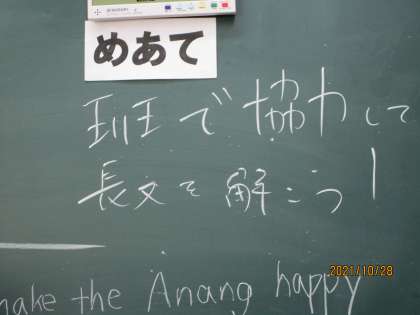 めあて
班で協力して
長文を解こう!
make the Anang happy
2021/10/28